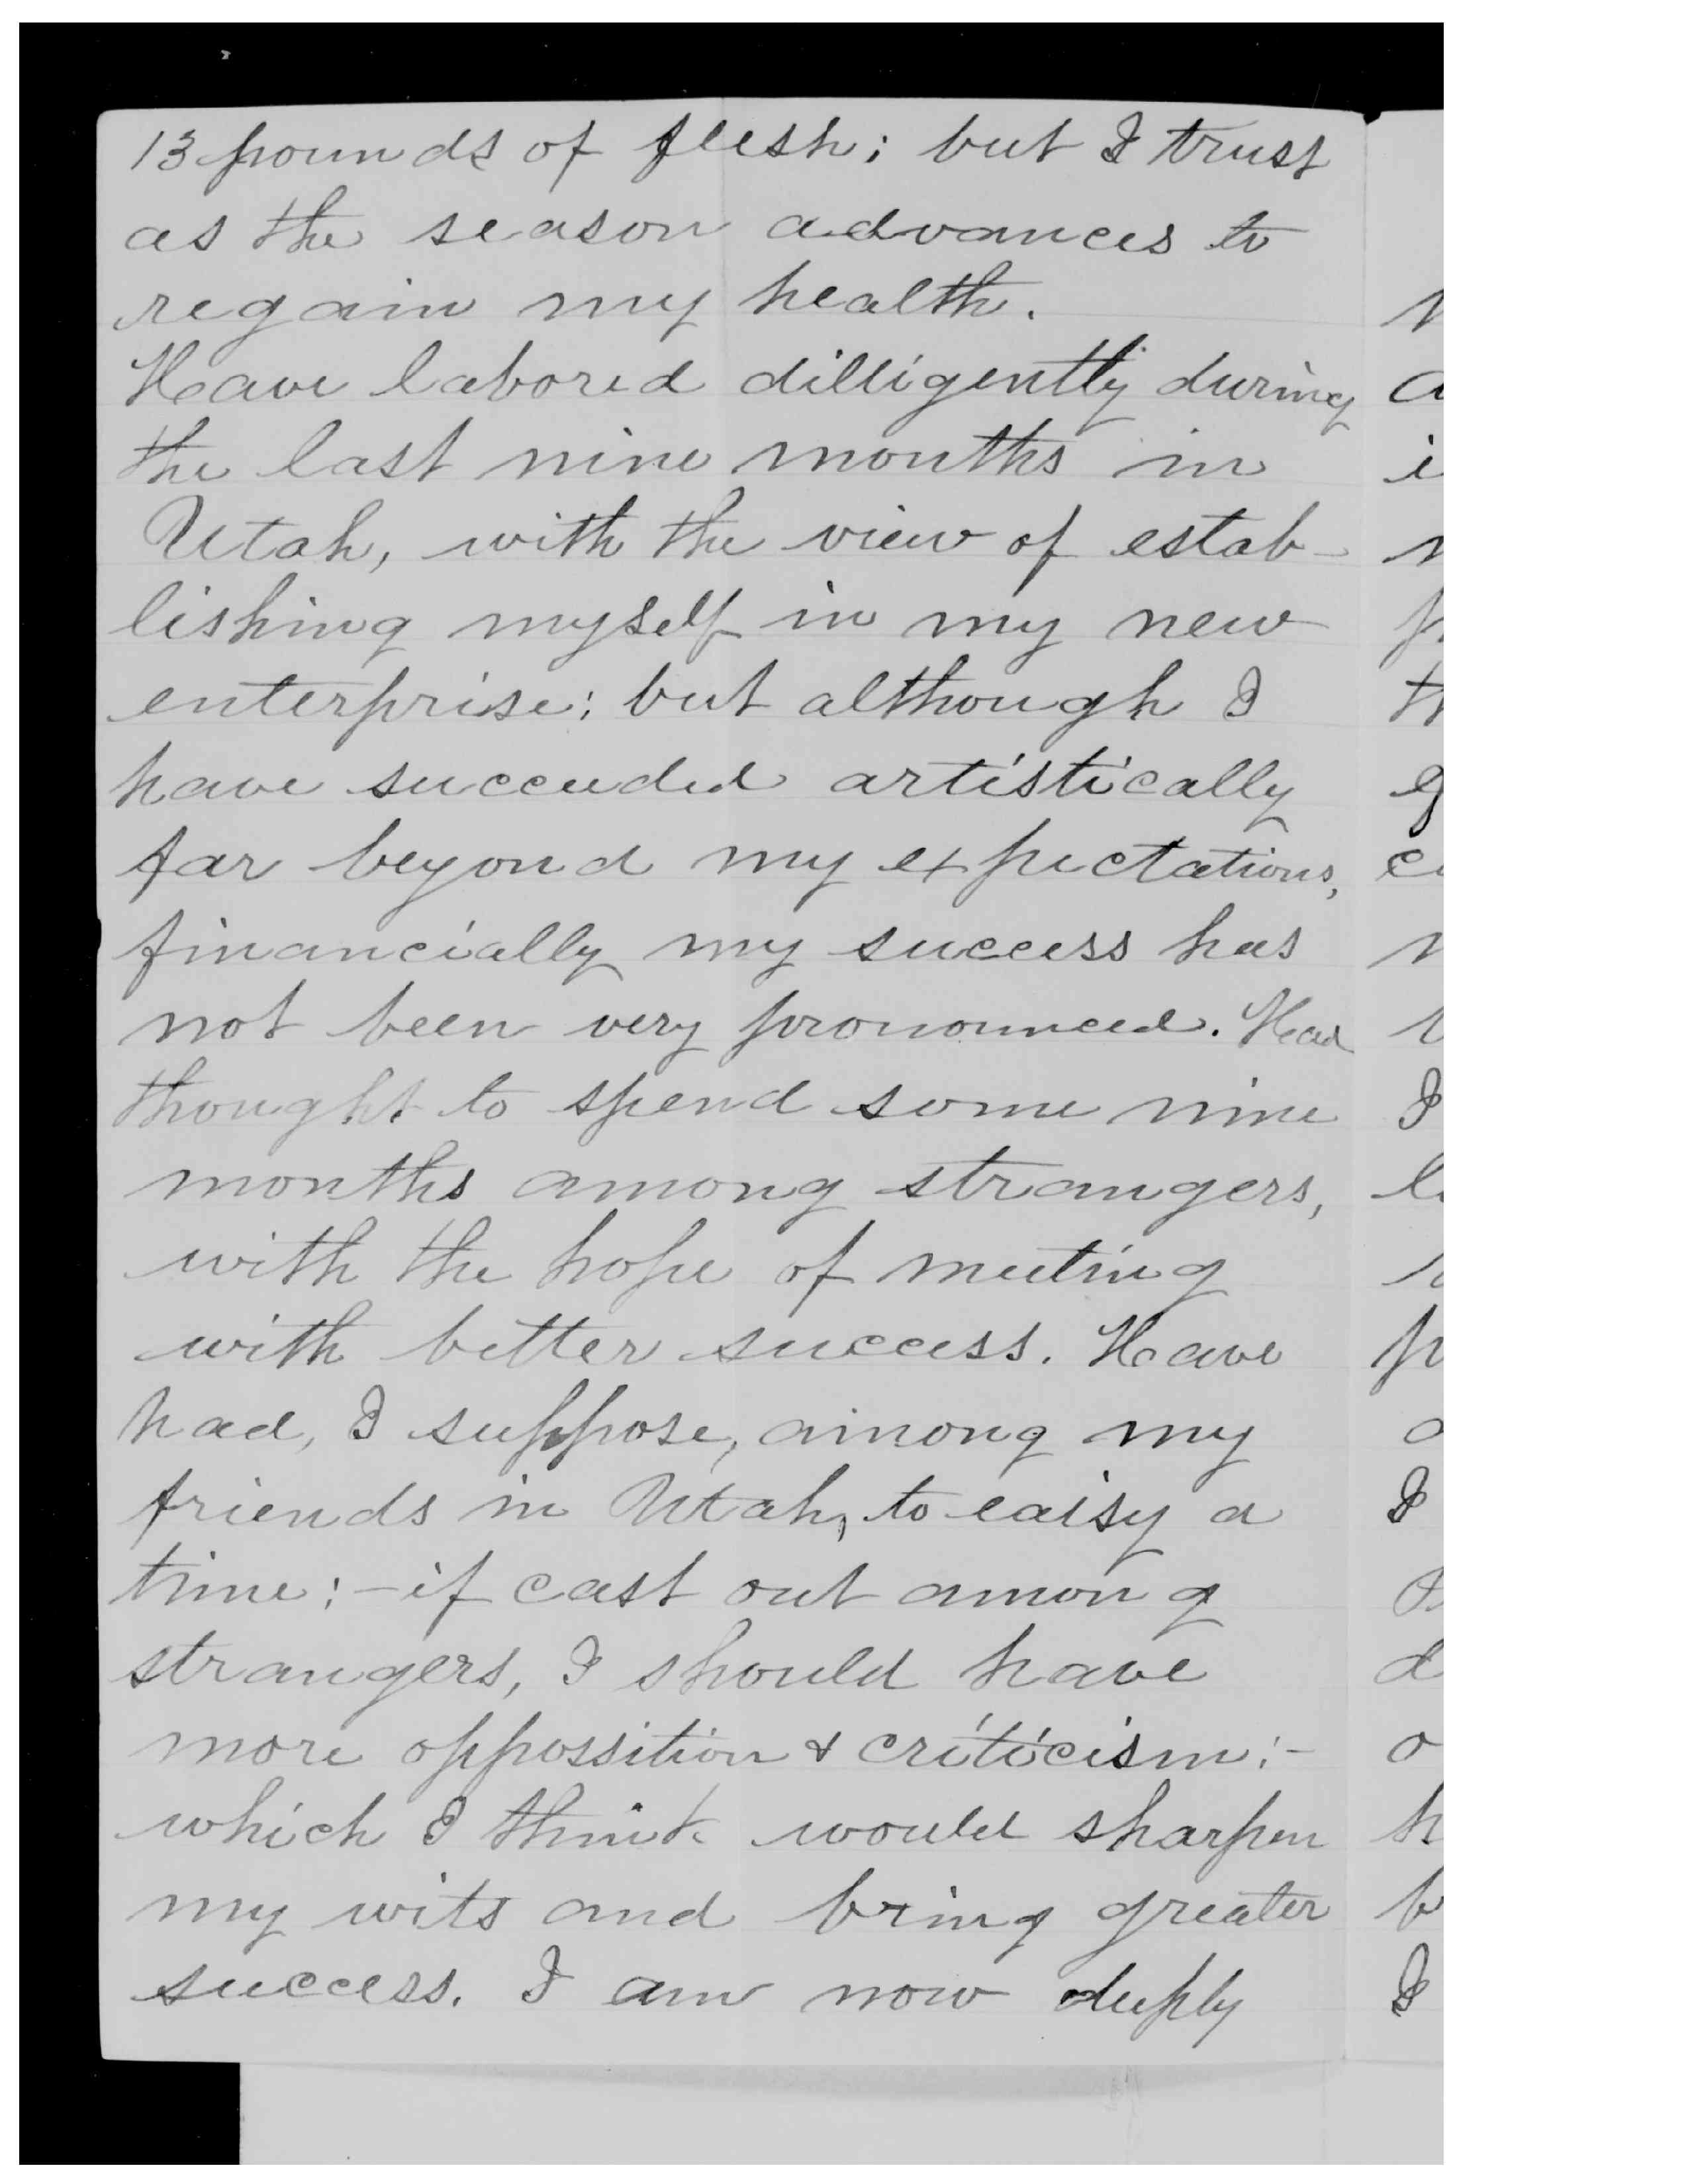 13 pounds of flesh; but I trust
as the season advances to
regain my health.
Have labored dilligently during
the last nine months in
Utah, with the view of estab-
lishing myself in my new
enterprise; but although I
have succeeded artistically
far beyond my expectations,
financially my success has
not been very pronounced. Had
thought to spend some nine
months among strangers,
with the hope of meeting
with better success. Have
had, I suppose, among my
friends in Utah, to eaisy a
time;- if cast out among
strangers, I should have
more oppossition & criticism:-
which I think would sharpen
my wits and bring greater
success. I am now deeply